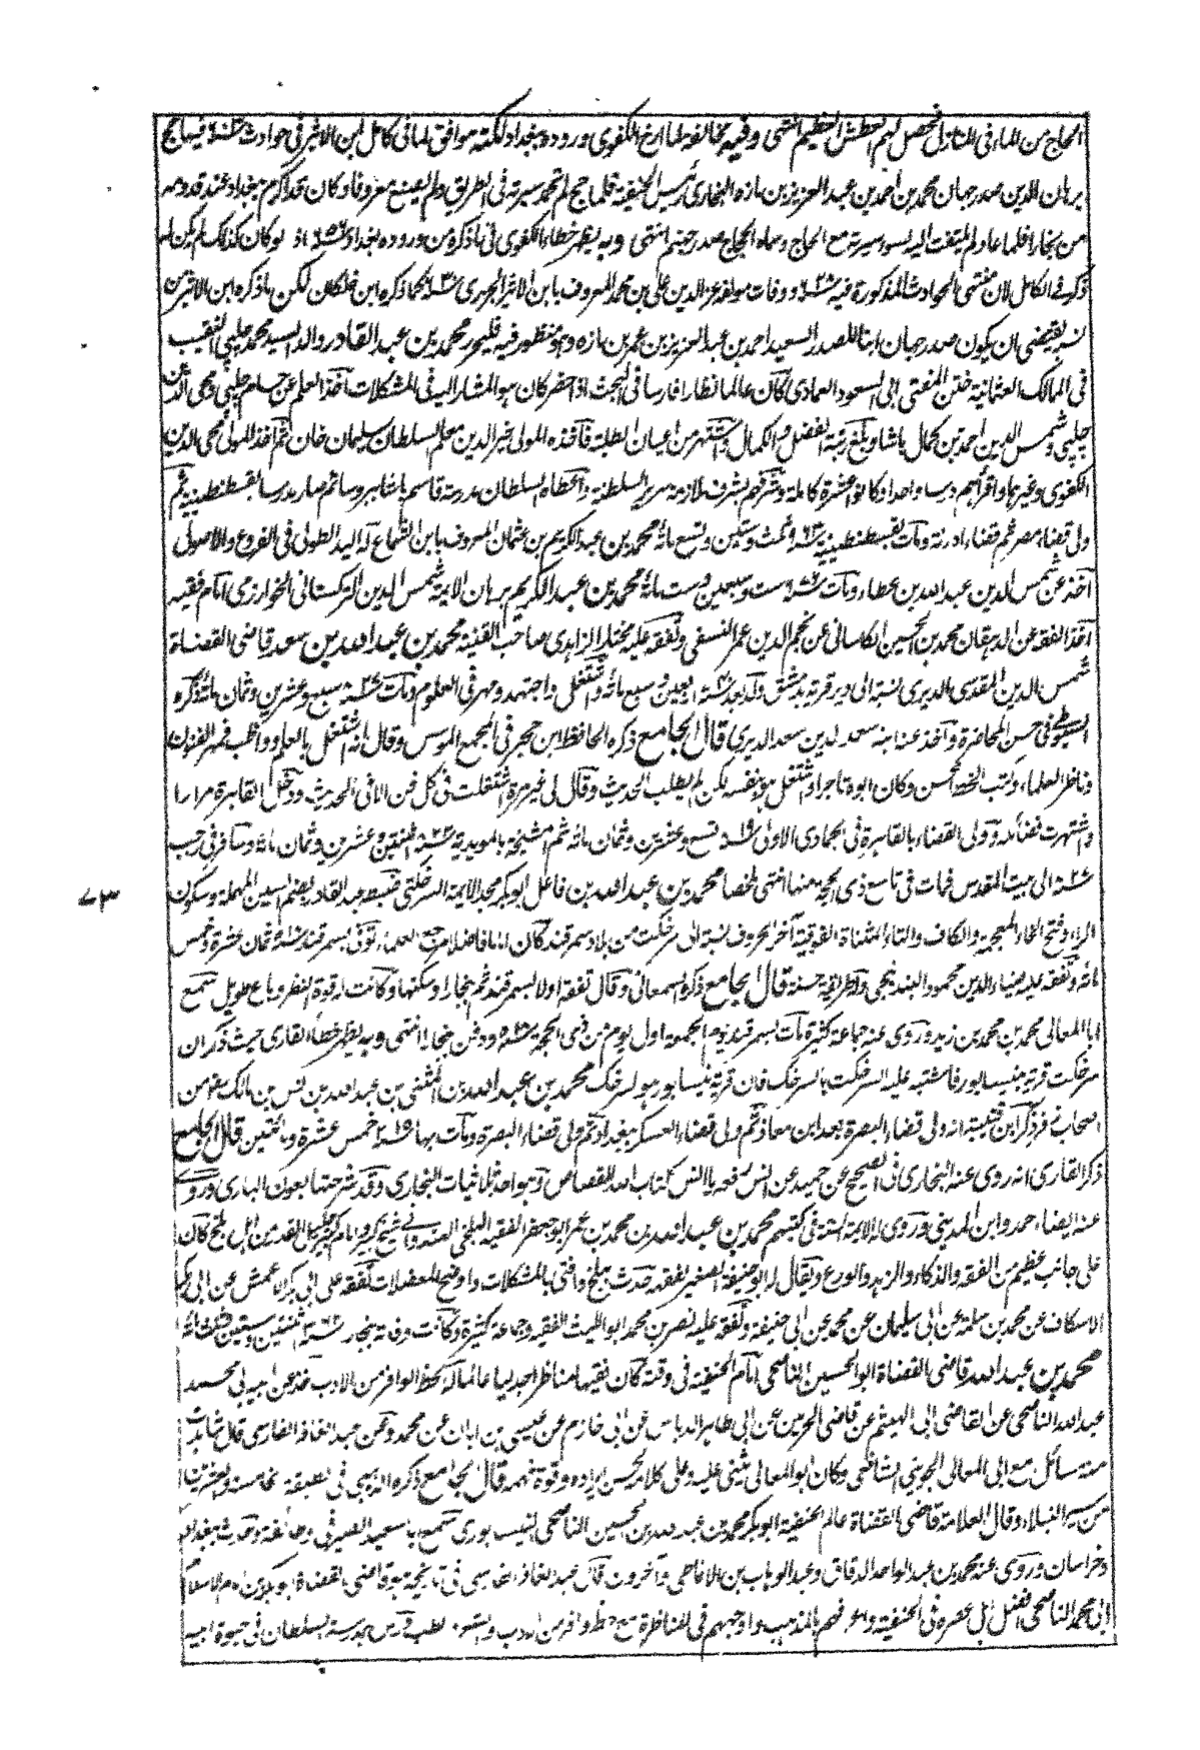 الحاج من الماء فى المنازل فحصل لهم العطش العظيم انتهى وفيه مخالفة لما ارخ الكفوى وروده ببغداد لكنه موافق لما فى كامل ابن الاثير فى حوادث سنة فيها حج
برهان الدين صدر جهان محمد بن احمد بن عبد العزيز بن مازه البخارى رئيس الحنفية فلما حج لم تحمد سيرته فى الطريق ولم يصنع معروفا وكان قد اكرم ببغداد عند قدومه
من بخارا فلما عاد لم يلتفت اليه لسوء سيرته مع الحاج وسماه الحجاج صدر جهنم انتهى وبه يظهر خطاء الكفوى فى ما ذكره من وروده بغداد سنة اذ لو كان كذلك لم يكن له
ذكر فى الكامل لان منتهى الحوادث المذكورة فيه سنة ٦٢٨ ووفات مولفه عز الدين على بن محمد المعروف بابن الاثير الجزرى سنة ٦٣٠ كما ذكره ابن خلكان لكن ما ذكره ابن الاثير من
نسبه يقتضى ان يكون صدر جهان ابنا للصدر السعيد احمد بن عبد العزيز بن عمر بن مازه وهو منظور فيه فليحرر محمد بن عبد القادر والد السيد محمد چلپى النقيب
فى الممالك العثمانية ختن المفتى ابى السعود العمادى كان عالما نظارا فارسا فى البحث اذا حضر كان هو المشار اليه فى المشكلات آخذ العلم عن حسام چلپى ومحى الدين
چلپى وشمس الدين احمد بن كمال پاشا وبلغ رتبة الفضل والكمال واشتهر من اعيان الطلبة فاخذه المولى خير الدين معلم السلطان سليمان خان ثم اخذ المولى محى الدين
الكفوى وغيرهما واقرأهم درسا واحدا وكانوا عشرة كاملة وشرفهم بشرف ملازمة سرير السلطنة واعطاه السلطان مدرسة قاسم پاشا ببروسا ثم صار مدرسا بقسطنطينية ثم
ولى قضاء مصر ثم قضاء ادرنة ومات بقسطنطينية سنة ٩٦٣ ثلث وستين وتسع مائة محمد بن عبد الكريم بن عثمان المعروف بابن الشماع له اليد الطولى فى الفروع والاصول
آخذ عن شمس الدين عبد الله بن عطاء ومات سنة ٦٧٦ ست وسبعين وست مائة محمد بن عبد الكريم برهان الايمة شمس الدين التركستانى الخوارزمى امام فقيه
اخذ الفقه عن الدهقان محمد بن الحسين الكاسانى عن نجم الدين عمر النسفى وتفقه عليه مختار الزاهدى صاحب القنية محمد بن عبد الله بن سعد قاضى القضاة
شمس الدين المقدسى الديرى نسبة الى دير قرية بدمشق ولد بعد سنة اربعين وسبع مائة واشتغل واجتهد ومهر فى العلوم ومات سنة ٨٢٧ سبع وعشرين وثمان مائة ذكره
السيوطى فى حسن المحاضرة واخذ عنه ابنه سعد الدين سعد الديرى قال الجامع ذكره الحافظ ابن حجر فى المجمع الموسس وقال انه اشتغل بالعلم وواظب فمهر الفنون
وناظر العلماء وكتب الخط الحسن وكان ابوه تاجرا واشتغل هو بنفسه لكن لم يطلب الحديث وقال لى غير مرة اشتغلت فى كل فن الا فى الحديث ودخل القاهرة مرارا
واشتهرت فضائله وولى القضاء بالقاهرة فى الجمادى الاولى سنة ٨١٩ تسع وعشرين وثمان مائة ثم مشيخة بالمويدية سنة ٨٢٢ اثنتين وعشرين وثمان مائة وسافر فى رجب
سنة ٨٢٧ الى بيت المقدس فمات فى تاسع ذى الحجة منها انتهى ملخصا محمد بن عبد الله بن فاعل ابو بكر مجد الايمة السرخكتى ضبطه عبد القادر بضم السين المهملة وسكون
الراء وفتح الخاء المعجمة والكاف والتاء المثناة الفوقية آخر الحروف نسبة الى سرخكت من بلاد سمرقند كان اماما فاضلا مرجع العلماء توفى بسمرقند سنة ٥١٨ ثمان عشرة وخمس
مائة وتفقه عليه ضياء الدين محمود البندنيجى وله طريقة حسنة قال الجامع ذكره السمعانى وقال تفقه اولا بسمرقند ثم ببخارا وسكنها وكانت له قوة النظر وباع طويل سمع
ابا المعالى محمد بن محمد بن زيد وروى عنه جماعة كثيرة مات بسمرقند يوم الجمعة اول يوم من ذى الحجة سنة ٥١٨ ودفن ببخارا انتهى وبه يظهر خطأ القارى حيث ذكر ان
سرخكت قرية بنيسابور فاشتبه عليه السرخكت بالسرخك فان قرية نيسابور هو سرخك محمد بن عبد الله بن المثنى بن عبد الله بن انس بن مالك هو من
اصحاب زفر ذكر ابن قتيبة انه ولى قضاء البصرة بعد ابن معاذ ثم ولى قضاء العسكر ببغداد ثم ولى قضاء البصرة ومات بها سنة ٢١٥ خمس عشرة ومائتين قال الجامع
ذكر القارى انه روى عنه البخارى فى الصحيح عن حميد عن انس رفعه يا انس كتاب الله القصاص وهو احد ثلاثيات البخارى وقد شرحتها بعون البارى وروى
عنه ايضا احمد وابن المدينى وروى له الايمة الستة فى كتبهم محمد بن عبد الله بن محمد بن عمر ابو جعفر الفقيه البلخى الهندوانى شيخ كبير وامام جليل القدر من اهل بلخ كان
على جانب عظيم من الفقه والذكاء والزهد والورع ويقال له ابو حنيفة الصغير لفقهه حدث ببلخ وافتى بالمشكلات واوضح المعضلات تفقه على ابى بكر الاعمش عن ابى بكر
الاسكاف عن محمد بن سلمة عن ابى سليمان عن محمد عن ابى حنيفة وتفقه عليه نصر بن محمد ابو الليث الفقيه وجماعة كثيرة وكانت وفاته ببخارا سنة ٣٦٢ اثنتين وستين وثلثمائة
محمد بن عبد الله قاضى القضاة ابو الحسين الناصحى امام الحنفية فى وقته كان فقيها مناظرا جدليا عالما له الحظ الوافر من الادب اخذ عن ابيه ابى محمد
عبد الله الناصحى عن القاضى ابى الهيثم عن قاضى الحرمين عن ابى طاهر الدباس عن ابى خازم عن عيسى بن ابان عن محمد وعن عبد الغافر الفارسى قال شاهدت
منه مسائل مع ابى المعالى الجوينى الشافعى وكان ابو المعالى يثنى عليه وعلى كلامه لحسن ايراده وقوة فهمه قال الجامع ذكره الذهبى فى الطبقة الخامسة والعشرين
من سير النبلاء وقال العلامة قاضى القضاة عالم الحنفية ابو بكر محمد بن عبد الله بن الحسين الناصحى النيسابورى سمع ابا سعيد الصيرفى وطائفة وحدث ببغداد
وخراسان وروى عنه محمد بن عبد الواحد الدقاق وعبد الوهاب بن الانماطى وآخرون قال عبد الغافر الفارسى فى تاريخه هو قاضى القضاة ابو بكر بن امام الاسلام
ابى محمد الناصحى افضل اهل عصره فى الحنفية واعرفهم بالمذهب واوجههم فى المناظرة مع حظ وافر من الادب والشعر والطب درس بمدرسة السلطان فى حيوة ابيه
٧٣